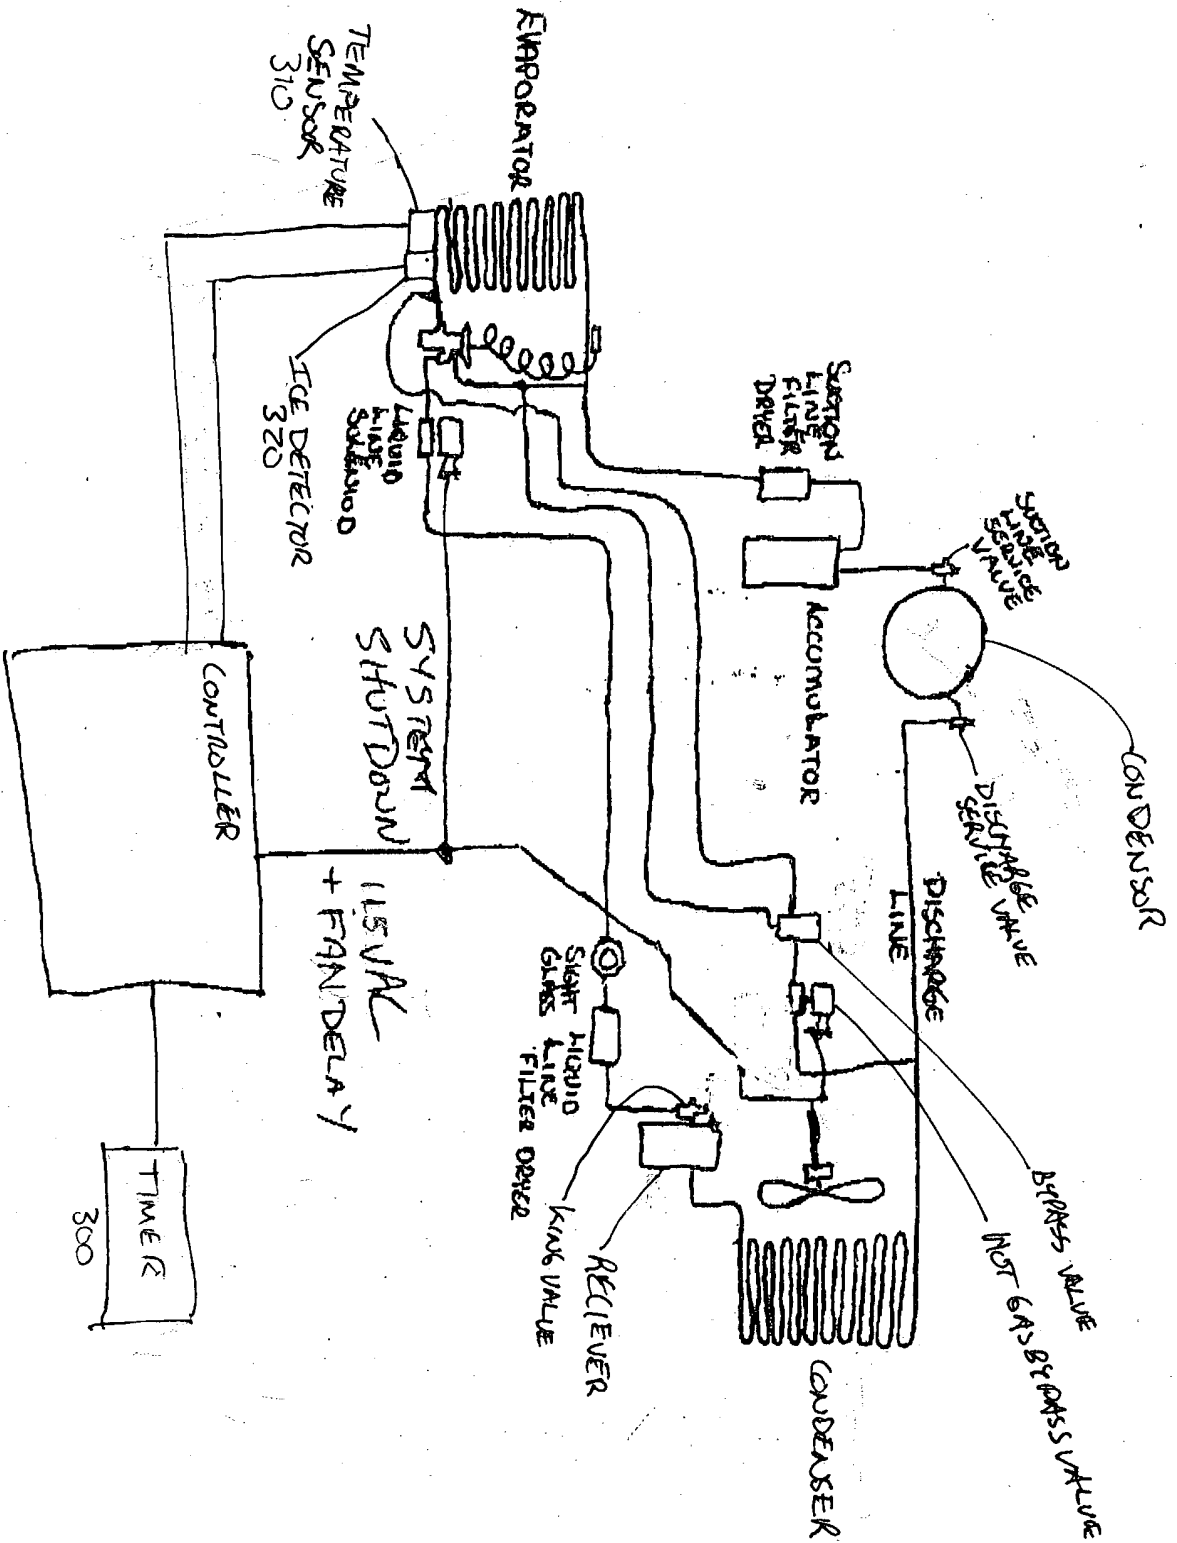 EVAPORATOR
TEMPERATURE
SENSOR
310
ICE DETECTOR
320
LIQUID
LINE
SOLENIOD
SUCTION
LINE
FILTER
DRYER
ACCUMULATOR
SUCTION
LINE
SERVICE
VALVE
CONDENSOR
DISCHARGE
SERVICE VALVE
DISCHARGE
LINE
SYSTEM
SHUT DOWN
CONTROLLER
115VAC
+ FAN DELAY
TIMER
300
SIGHT
GLASS
LIQUID
LINE
FILTER DRYER
KING VALVE
RECIEVER
BYPASS VALVE
HOT GAS BYPASS VALVE
CONDENSER